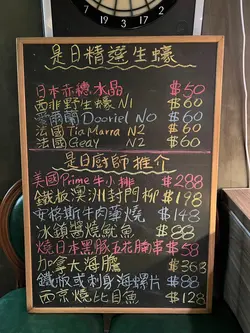 是日精選生蠔
日本赤穗冰晶 $50
西非野生蠔 N1 $60
愛爾蘭 Dooriel N0 $60
法國 Tia Marra N2 $60
法國 Geay N2 $60
是日厨師推介
美國Prime牛小排 $288
鐵板澳洲封門柳 $198
安格斯牛肉壽喜燒 $148
冰鎮醬燒魷魚 $88
燒日本黑豚五花腩串 $58
加拿大海膽 $368
鐵板或刺身海螺片 $88
西京燒比目魚 $128